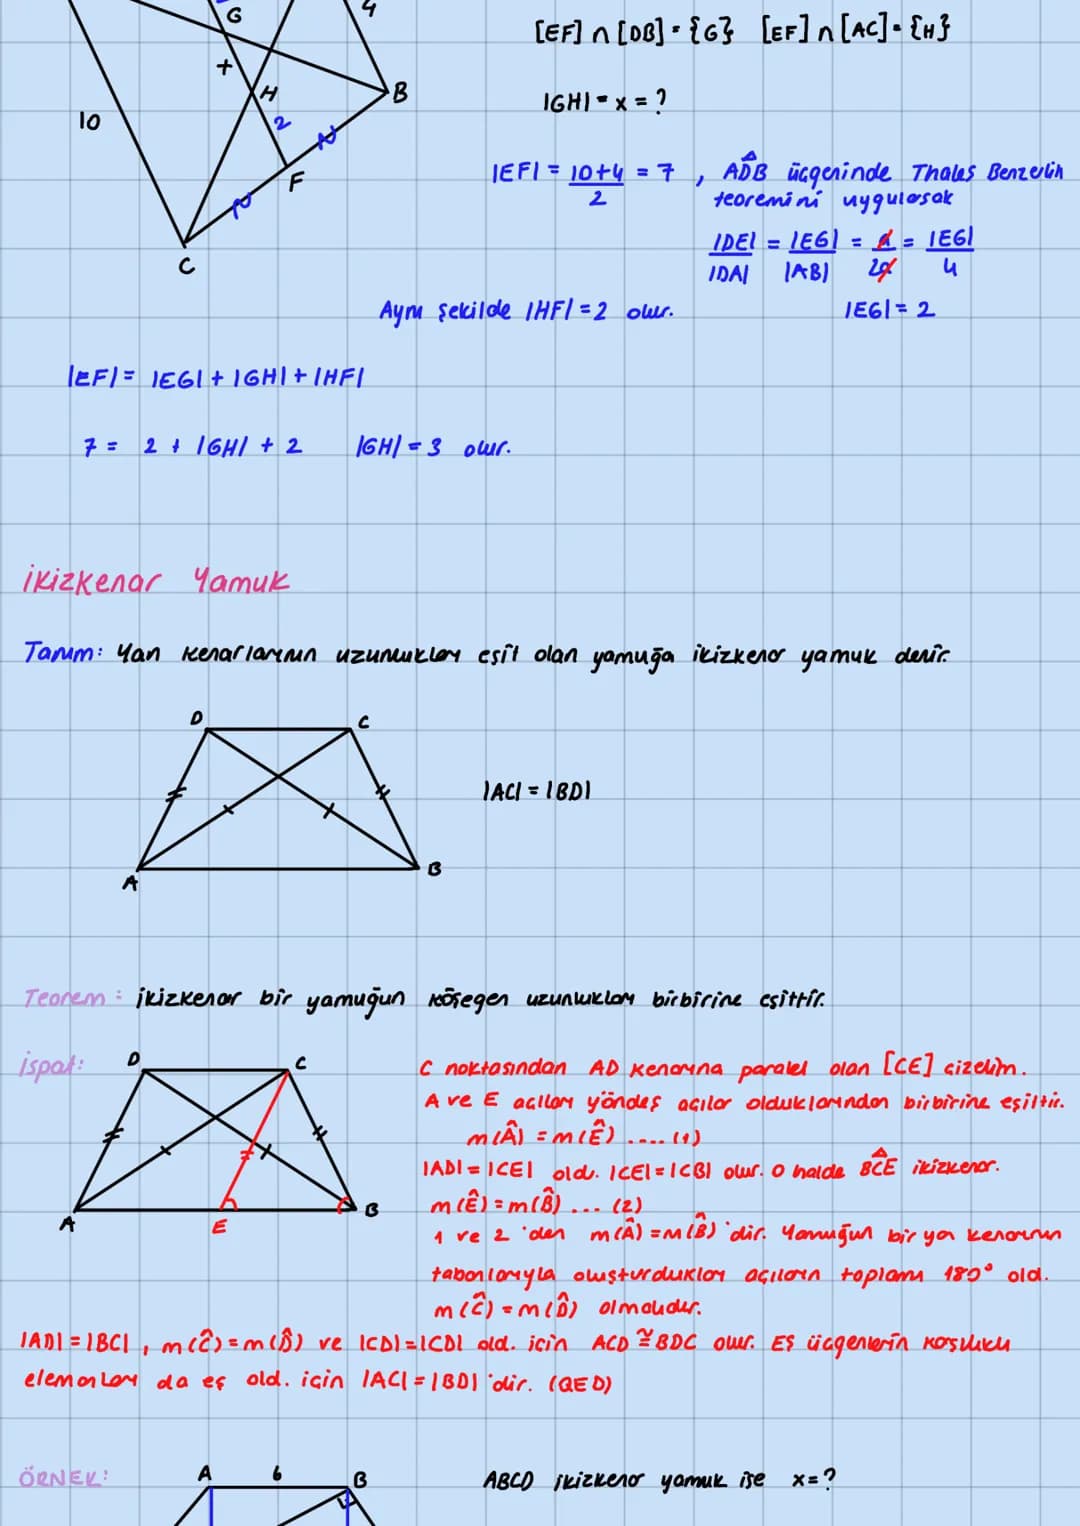 G
4
[EF] ∩ [DB] = {G} [EF] ∩ [AC] = {H}
+
H
B
10
2
|GH| = x = ?
F
C
|EF| = 10+4 / 2 = 7 , ADB üçgeninde Thales Benzerlik
teoremini uygularsak
|DE| / |DA| = |EG| / |AB| = a / 2a = |EG| / 4
Aynı şekilde |HF| = 2 olur.
|EG| = 2
|EF| = |EG| + |GH| + |HF|
7 = 2 + |GH| + 2 |GH| = 3 olur.
İkizkenar Yamuk
Tanım: Yan kenarlarının uzunlukları eşit olan yamuğa ikizkenar yamuk denir.
D
C
|AC| = |BD|
A
B
Teorem: ikizkenar bir yamuğun köşegen uzunlukları birbirine eşittir.
ispat:
D
C
A
E
B
C noktasından AD kenarına paralel olan [CE] çizelim.
A ve E açıları yöndeş açılar olduklarından birbirine eşiltir.
m(Â) = m(Ê) .... (1)
|AD| = |CE| old. |CE| = |CB| olur. O halde BCE ikizkenar.
m(Ê) = m(B̂) ... (2)
1 ve 2 'den m(Â) = m(B̂) 'dir. Yamuğun bir yan kenarının
tabanlarıyla oluşturdukları açıların toplamı 180° old.
m(Ĉ) = m(D̂) olmalıdır.
|AD| = |BC| , m(Ĉ) = m(D̂) ve |CD| = |CD| old. için ACD ≅ BDC olur. Eş üçgenlerin karşılıklı
elemanları da eş old. için |AC| = |BD| 'dir. (QED)
ÖRNEK:
A 6 B
ABCD ikizkenar yamuk ise x = ?